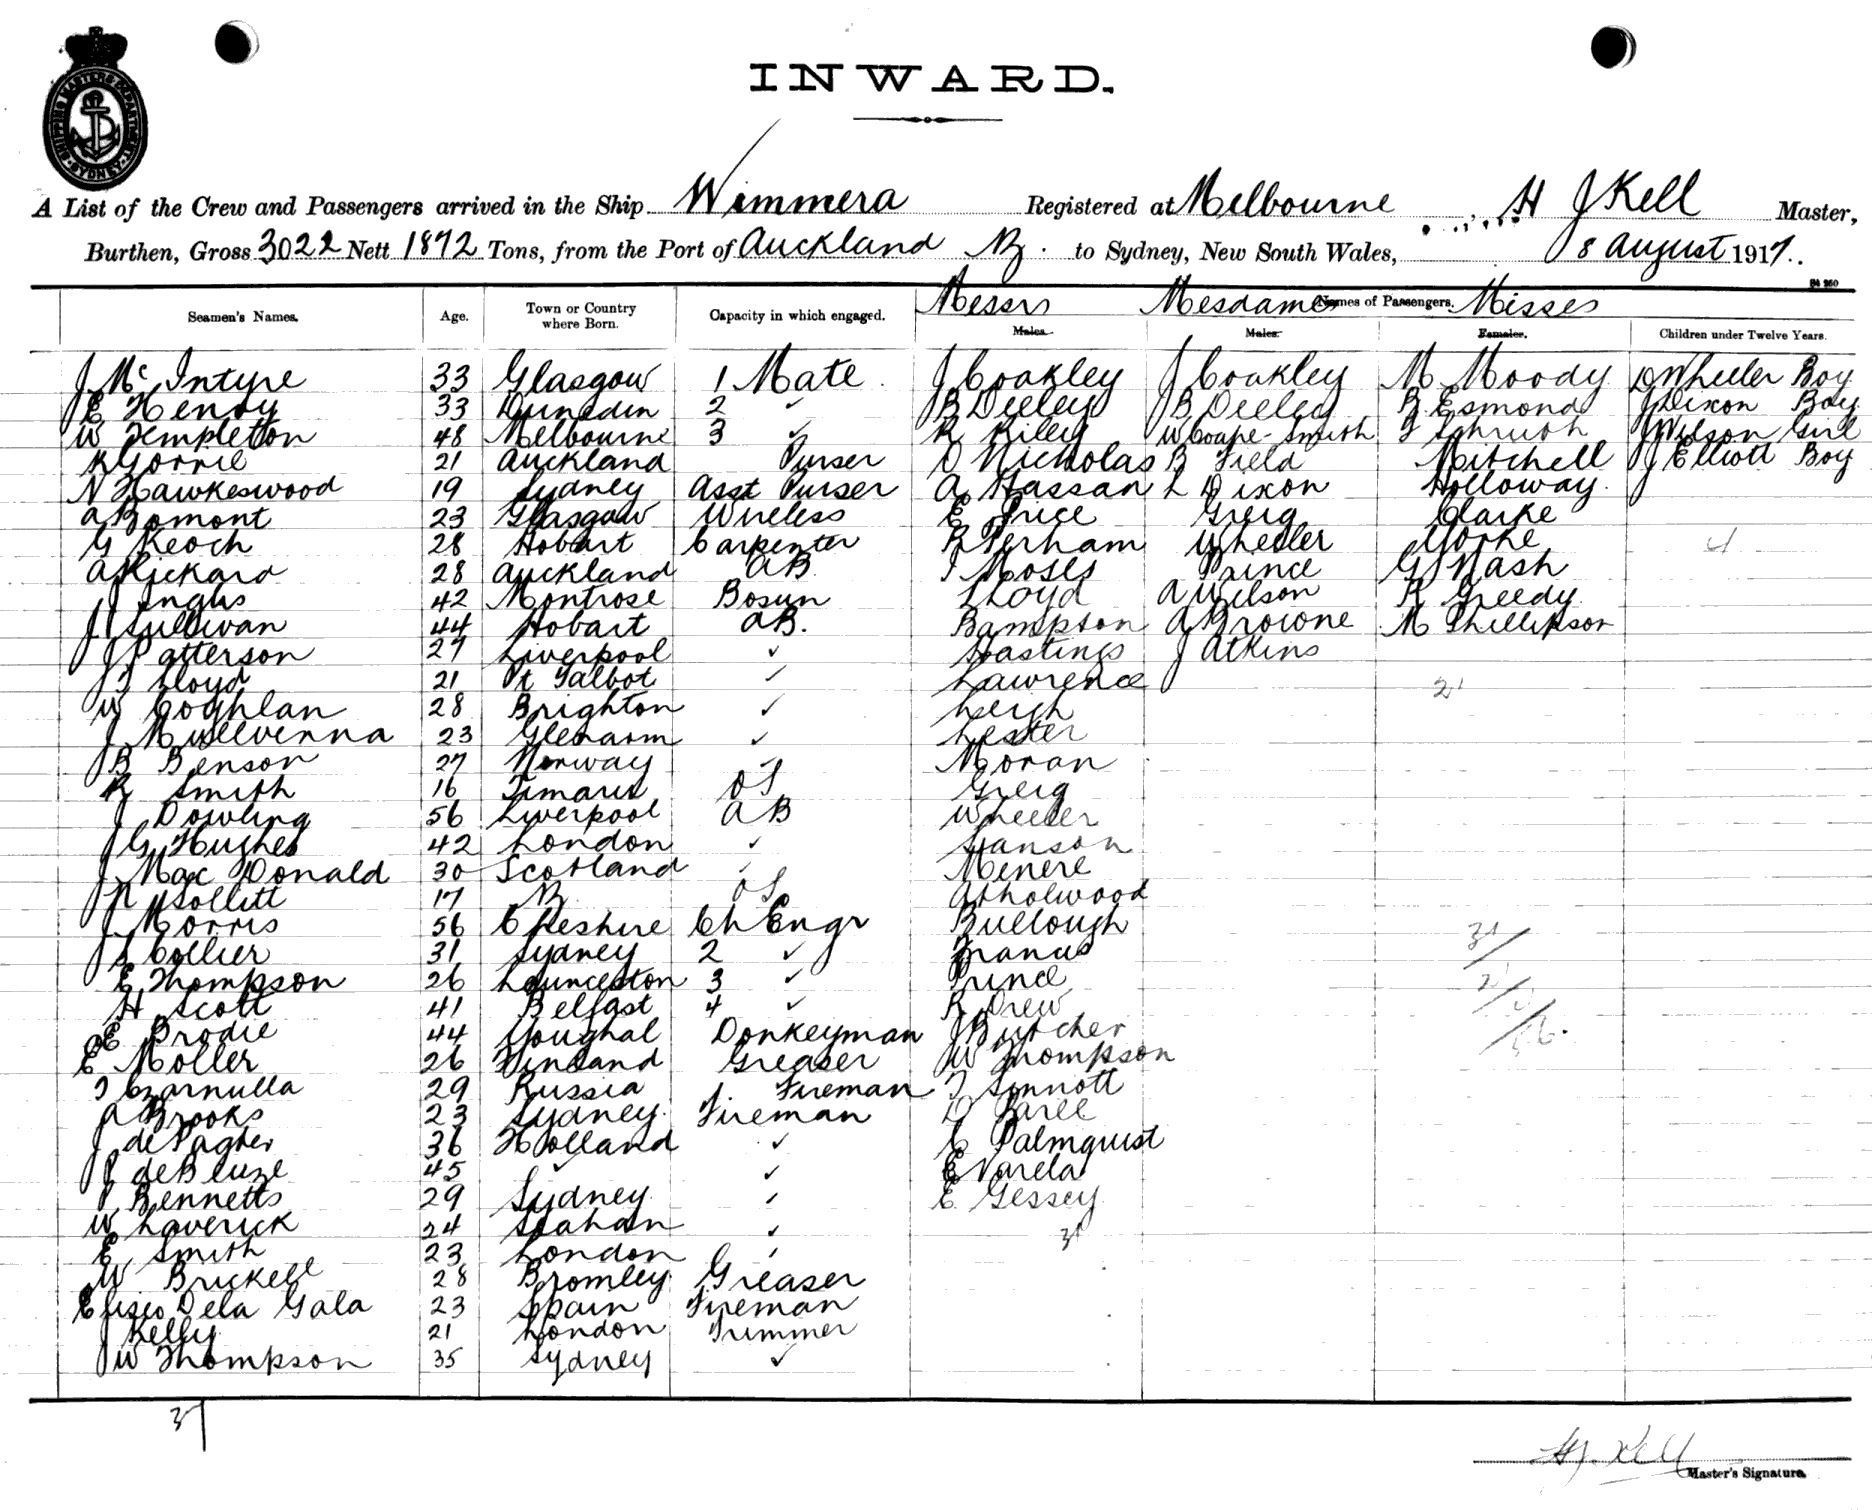 INWARD.
SHIPPING MASTERS DEPARTMENT SYDNEY
A List of the Crew and Passengers arrived in the Ship Wimmera Registered at Melbourne H J Kell Master,
Burthen, Gross 3022 Nett 1892 Tons, from the Port of Auckland NZ. to Sydney, New South Wales, 8 August 1917.
Messrs Mesdames Names of Passengers. Misses
Seamen's Names. Age. Town or Country where Born. Capacity in which engaged. Males. Males. Females. Children under Twelve Years.
J McIntyre 33 Glasgow 1 Mate J Coakley J Coakley M Moody D Wheeler Boy
E Henry 33 Dunedin 2 ✓ B Deeley B Deeley B Esmond J Dixon Boy
W Templetton 48 Melbourne 3 ✓ R Riley W Coape-Smith J Wilson Girl
R Gorrie 21 Auckland Purser D Nicholas B Field Mitchell J Elliott Boy
N Hawkeswood 19 Sydney Asst Purser A Hassan L Dixon Holloway.
A Bomont 23 Glasgow Wireless E Price Greig Clarke
G Keoch 28 Hobart Carpenter R Perham Wheeler Yorke 4
A Rickard 28 Auckland AB I Moses Prince G Nash
J Inglis 42 Montrose Bosun Lloyd A Wilson R Greedy
J Sullivan 44 Hobart AB. Bampton A Browne M Phillipson
J Patterson 27 Liverpool ✓ Hastings J Atkins
J J Lloyd 21 Pt Talbot ✓ Lawrence 21
W Coghlan 28 Brighton ✓ Leigh
J McIlvenna 23 Glenarm ✓ Lester
B Benson 27 Norway ✓ Moran
R Smith 16 Timaru OS Greig
J Dowling 56 Liverpool AB Wheeler
J G Hughes 42 London ✓ Hanson
J MacDonald 30 Scotland ✓ Menere
R Sollitt 17 NZ OS Atholwood
J Morris 56 Cheshire Ch Engr Bullough 31
J S Collier 31 Sydney 2 ✓ Francis
E Thompson 26 Launceston 3 ✓ Prince
H Scott 41 Belfast 4 ✓ R Drew
E Brodie 44 Youghal Donkeyman J Butcher
E Moller 26 Finland Greaser W Thompson
I Czarnulla 29 Russia Fireman T Sinnott
A Brooks 23 Sydney Fireman
J de Pagter 36 Holland ✓ C Palmquist
P de Bluze 45 ✓ ✓ E Varela
P Bennetts 29 Sydney ✓ E Gessey
W Laverick 24 ✓ 31
E Smith 23 London ✓
W Brickell 28 Bromley Greaser
Eliseo Dela Gala 23 Spain Fireman
J Kelly 21 London Trimmer
J W Thompson 35 Sydney ✓
37
H J. Kell
Master's Signature.